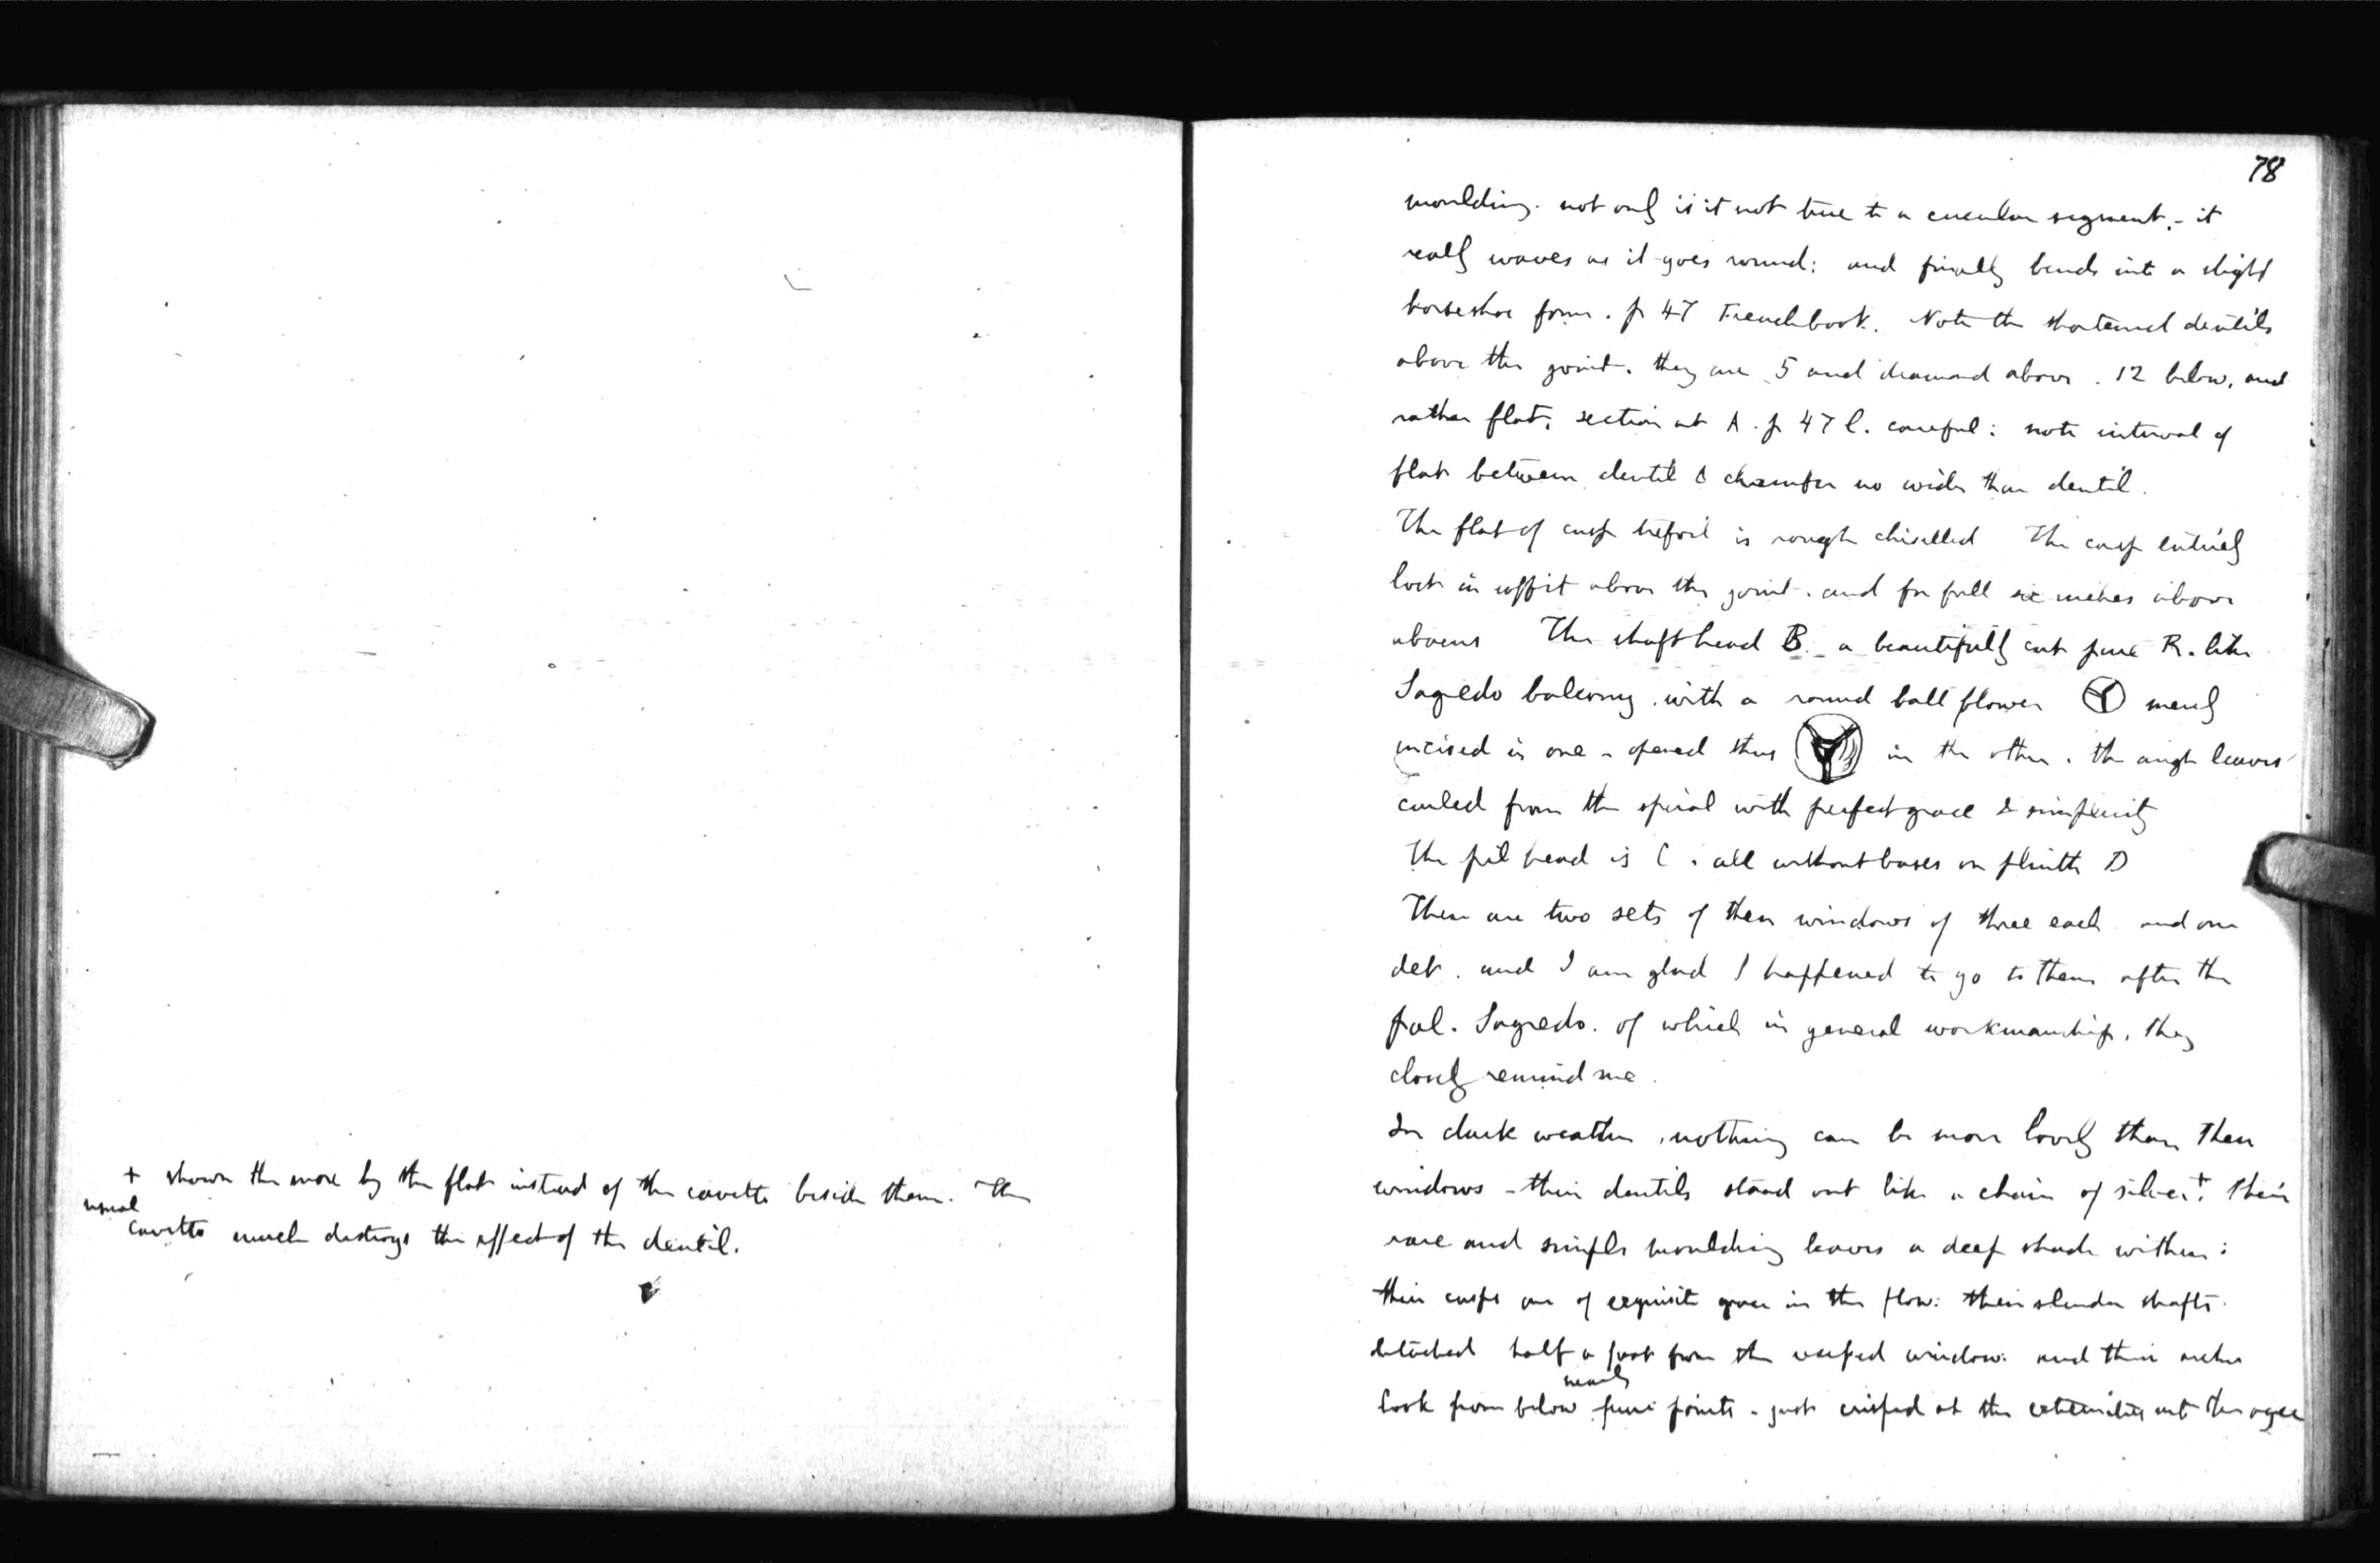 + shown the more by the flat instead of the cavetto beside them. The
usual
cavetto much destroys the effect of the dentil.
78
moulding. not only is it not true to a circular segment, - it
really waves as it goes round: and finally bends into a slight
horseshoe form. p 47 Frenchbook. Note the shortened dentils
above the joint. they are 5 and diamond above. 12 below, and
rather flat; section at A. p 47 l. careful: note interval of
flat between dentil & chamfer no wider than dentil.
The flat of cusp trefoil is rough chiselled The cusp entirely
lost in soffit above the joint. and for full six inches above
abacus The shaft head B. a beautifully cut pure R. like
Sagredo balcony. with a round ball flower merely
incised in one - opened thus in the other. the angle leaves
curled from the spiral with perfect grace & simplicity
The pil head is C. all without bases on plinth D
There are two sets of these windows of three each and one
det. and I am glad I happened to go to them after the
pal. Sagredo. of which in general workmanship, they
closely remind me.
In dark weather, nothing can be more lovely than these
windows - their dentils stand out like a chain of silver +. their
rare and simple moulding leaves a deep shade within:
their cusps are of exquisite grace in the flow: their slender shafts.
detached half a foot from the cusped window: and their arches
nearly
look from below pure points - just crisped at the extremities into the ogee